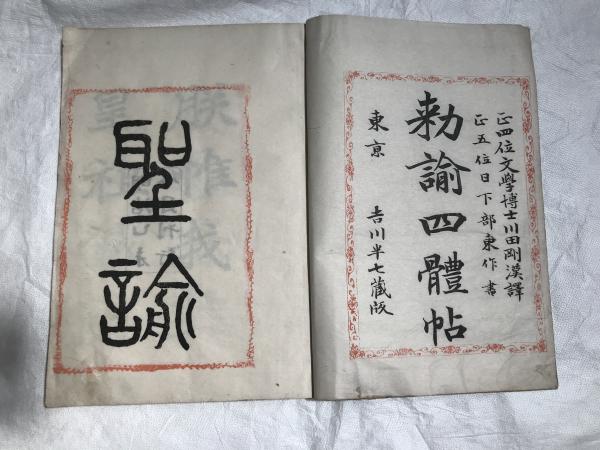 正四位文學博士川田剛漢譯
正五位日下部東作書
勅諭四體帖
東京 吉川半七藏版
聖諭
朕惟我
皇祖